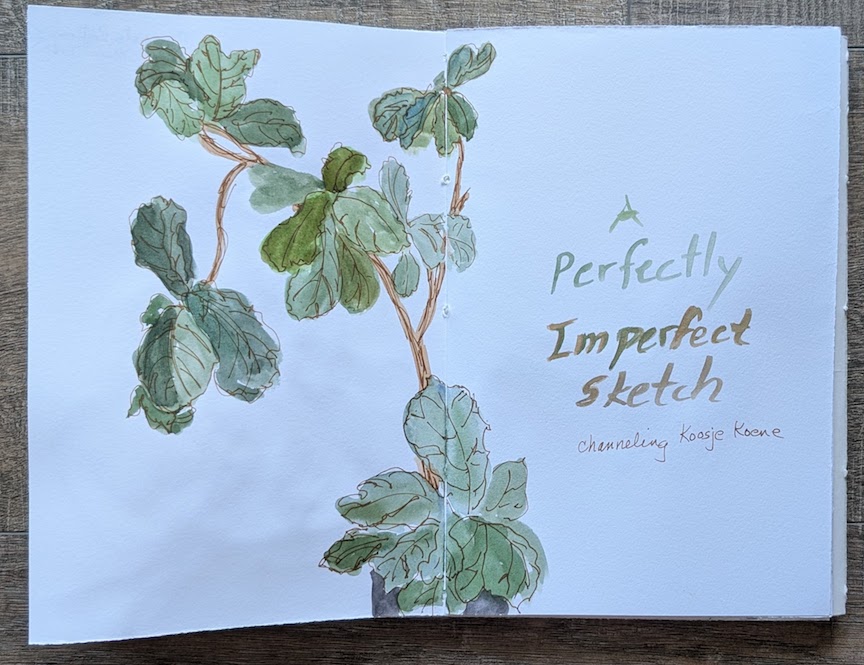 A
Perfectly
Imperfect
Sketch
channeling Koosje Koene